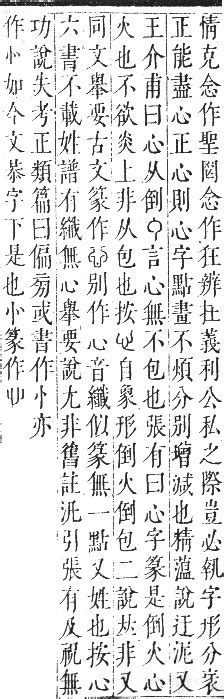 情克念作聖罔念作狂辨在義利公私之際豈必執字形分衺
正能盡心正心則心字點畫不煩分別增減也精薀說迂泥又
王介甫曰心从倒勹言心無不包也張有曰心字篆是倒火心
火也不欲炎上非从包也按心自象形倒火倒包二說𠀤非又
同文舉要古文篆作別作心音纖似篆無一點又姓也按心
六書不載姓譜有纖無心舉要說尤非舊註汎引張有及祝無
功說失考正類篇曰偏旁或書作忄亦
作㣺如今文恭字下是也小篆作